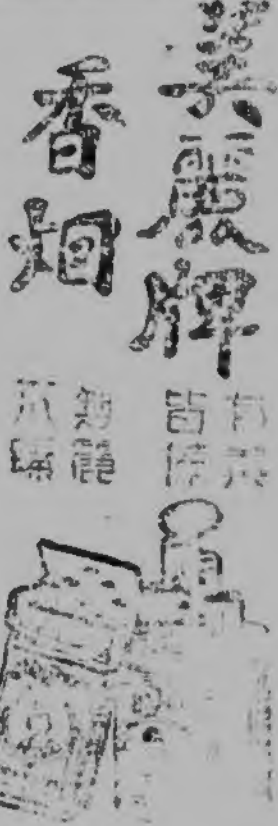 美麗牌
香烟
有美
皆備
無麗
弗臻